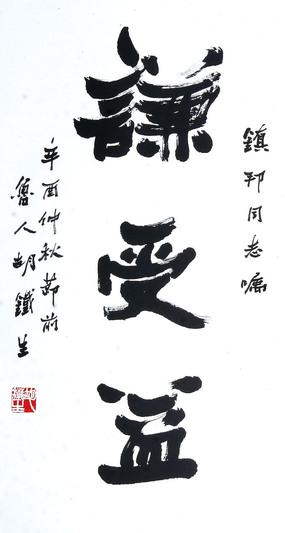 鎮邦同志嘱
謙受益
辛酉仲秋節前
魯人胡鐵生